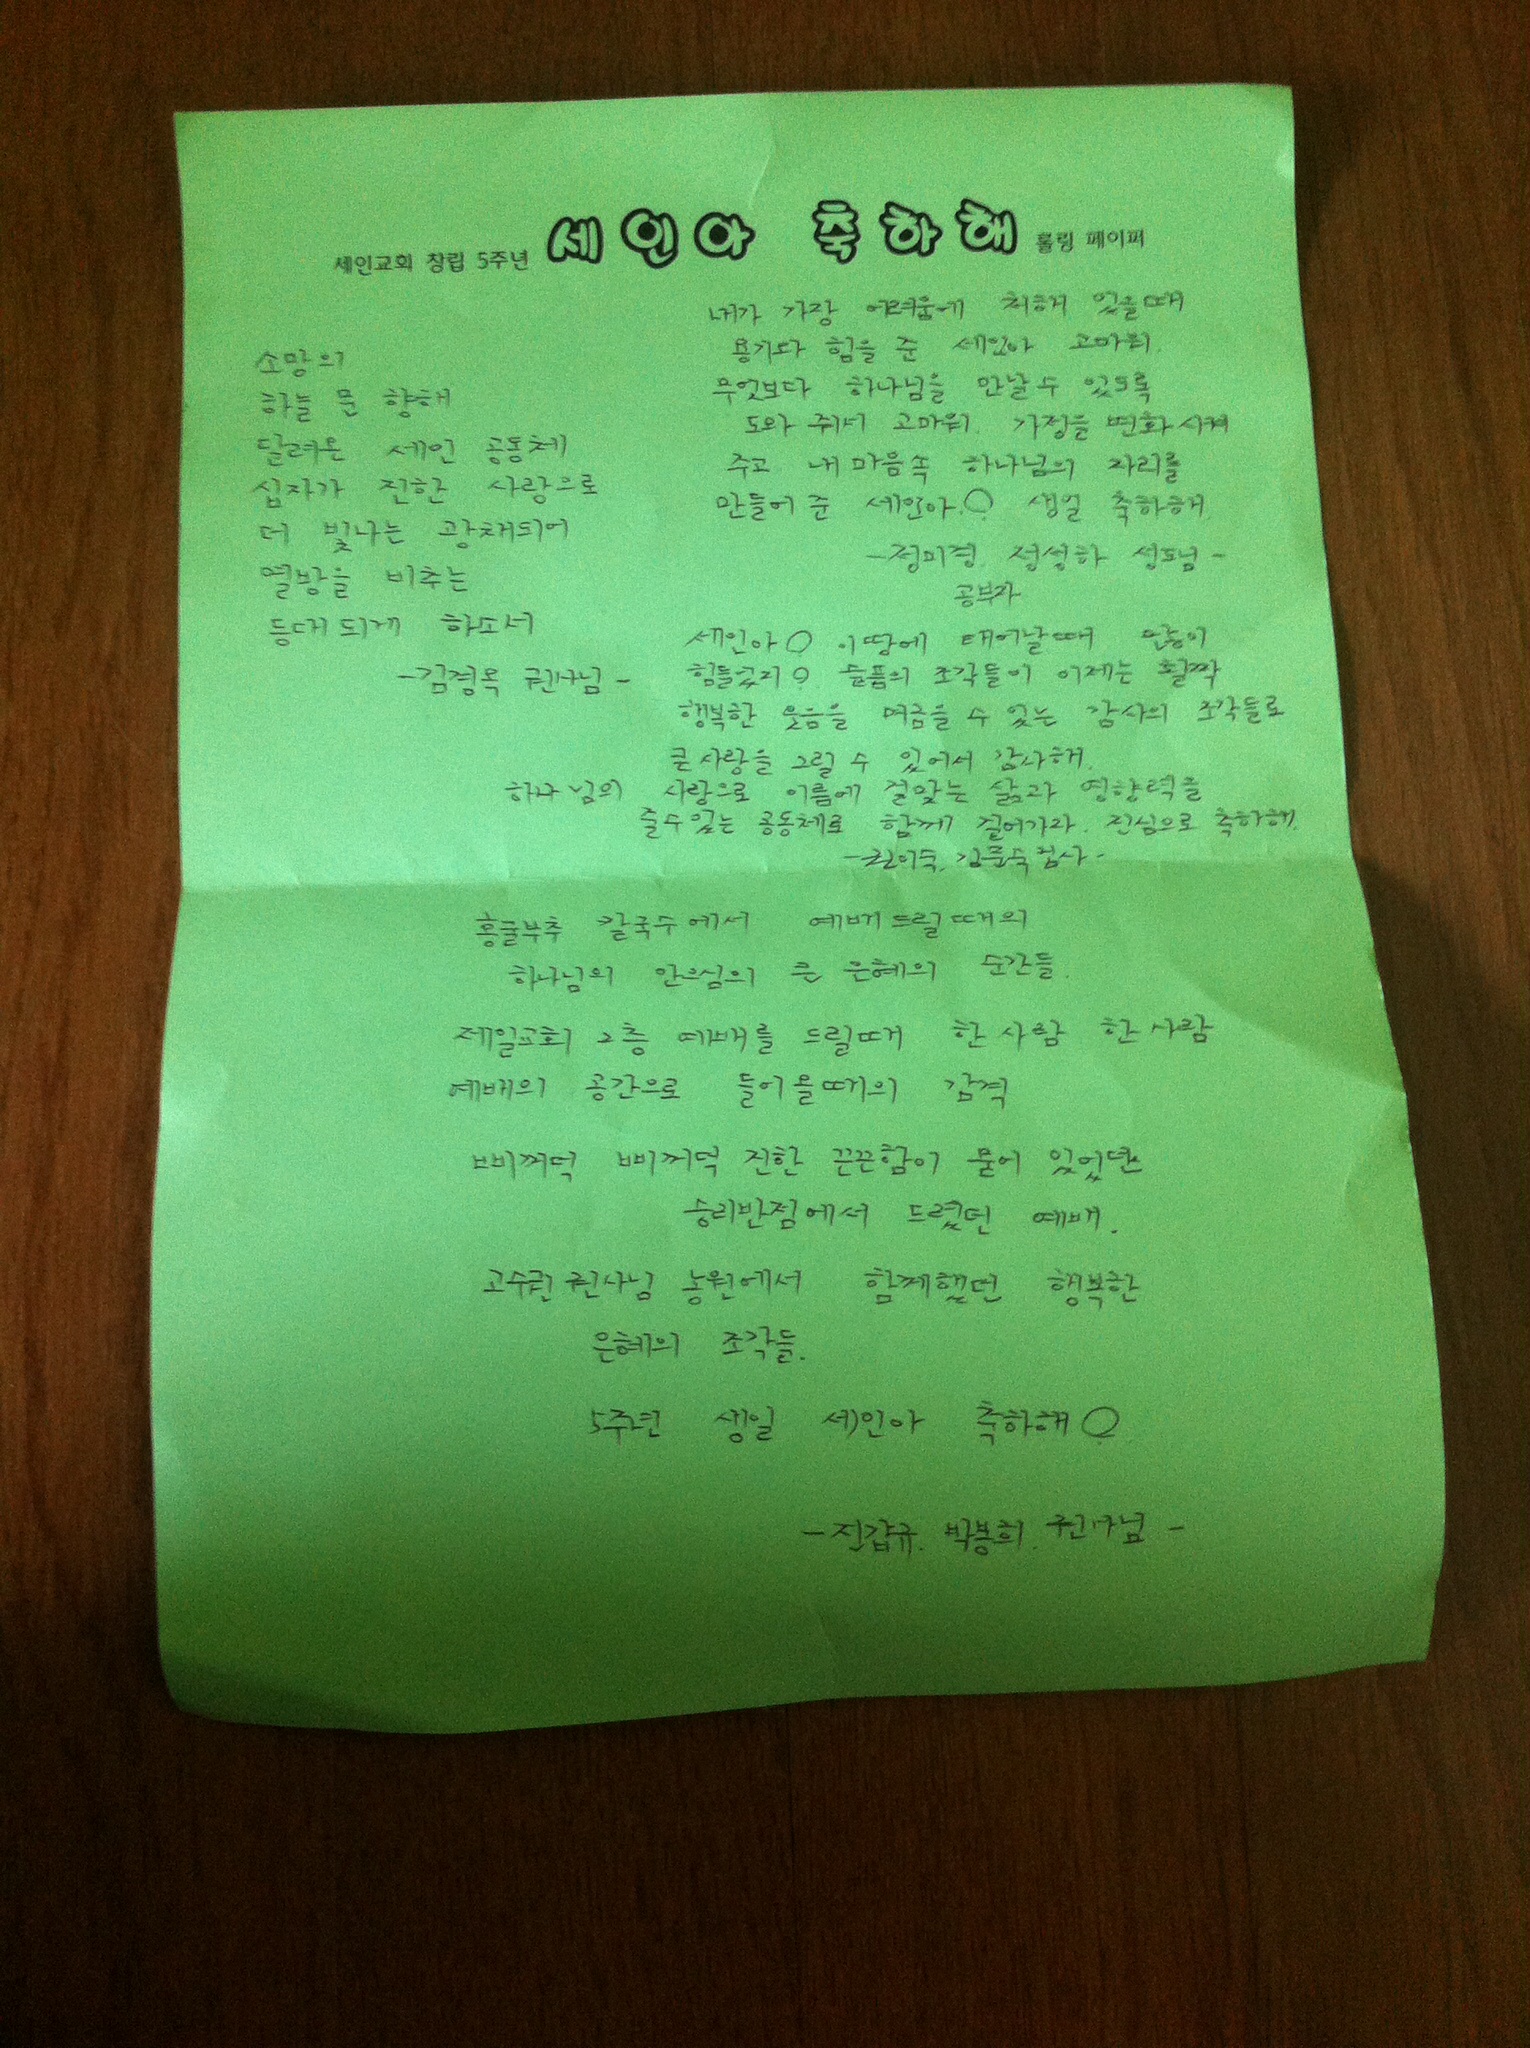 세인교회 창립 5주년 세인아 축하해 롤링 페이퍼
소망의
하늘 문 향해
달려온 세인 공동체
십자가 진한 사랑으로
더 빛나는 광채되어
열방을 비추는
등대 되게 하소서
-김경옥 권사님-
내가 가장 어려움에 처해 있을때
용기와 힘을 준 세인아 고마워.
무엇보다 하나님을 만날 수 있도록
도와 줘서 고마워. 가정을 변화시켜
주고 내 마음속 하나님의 자리를
만들어 준 세인아. 생일 축하해
-정미경. 정성하 성도님-
공부차
세인아 이 땅에 태어날때 많이
힘들었지? 슬픔의 조각들이 이제는 활짝
행복한 웃음을 머금을 수 있는 감사의 조각들로
큰 사랑을 그릴 수 있어서 감사해.
하나님의 사랑으로 이름에 걸맞는 삶과 영향력을
줄수있는 공동체로 함께 걸어가자. 진심으로 축하해.
김문숙 집사-
흥굴부추 칼국수에서 예배드릴때의
하나님의 안으심의 큰 은혜의 순간들.
제일교회 2층 예배를 드릴때 한 사람 한 사람
예배의 공간으로 들어올때의 감격
삐꺼덕 삐꺼덕 진한 끈끈함이 묻어 있었던
승리반점에서 드렸던 예배.
고수권 권사님 농원에서 함께했던 행복한
은혜의 조각들.
5주년 생일 세인아 축하해
-진갑규. 박봉희. 권사님-